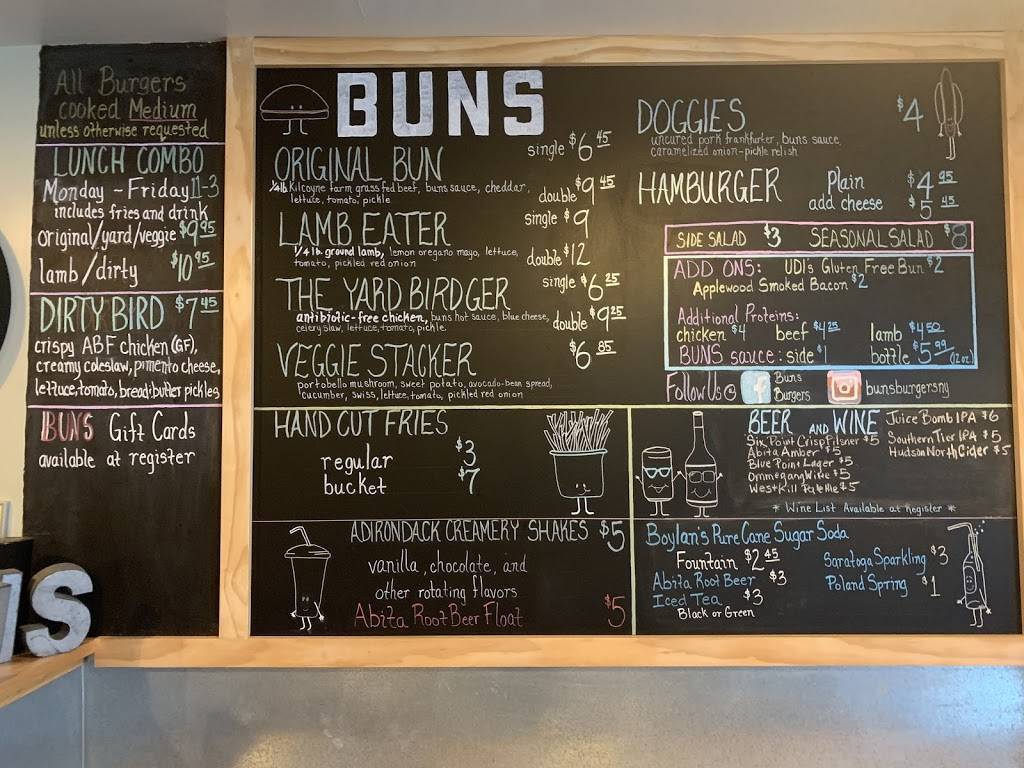 All Burgers
cooked Medium
unless otherwise requested
LUNCH COMBO
Monday ~ Friday 11-3
includes fries and drink
original/yard/veggie $9.95
lamb/dirty $10.95
DIRTY BIRD $7.45
crispy ABF chicken (GF),
creamy coleslaw, pimento cheese,
lettuce, tomato, bread i butter pickles
BUNS Gift Cards
available at register
NS
BUNS
ORIGINAL BUN single $6.45
1/4 lb Kilcoyne farm grass fed beef, buns sauce, cheddar, double $9.45
lettuce, tomato, pickle
LAMB EATER single $9
1/4 lb. ground lamb, lemon oregano mayo, lettuce, double $12
tomato, pickled red onion
THE YARD BIRDGER single $6.25
antibiotic-free chicken, buns hot sauce, blue cheese, double $9.25
celery slaw, lettuce, tomato, pickle
VEGGIE STACKER $6.85
portobello mushroom, sweet potato, avocado-bean spread,
cucumber, swiss, lettuce, tomato, pickled red onion
DOGGIES $4
uncured pork frankfurter, buns sauce,
caramelized onion-pickle relish
HAMBURGER Plain $4.95
add cheese $5.45
SIDE SALAD $3 SEASONAL SALAD $8
ADD ONS: UDI's Gluten Free Bun $2
Applewood Smoked Bacon $2
Additional Proteins:
chicken $4 beef $4.25 lamb $4.50
BUNS sauce: side $1 bottle $5.99 (12oz)
Follow Us @ f Buns Burgers bunsburgersny
HAND CUT FRIES
regular $3
bucket $7
BEER AND WINE
Six Point Crisp Pilsner $5
Abita Amber $5
Blue Point Lager $5
Ommegang Witte $5
West Kill Pale Ale $5
Juice Bomb IPA $6
Southern Tier IPA $5
Hudson North Cider $5
* Wine List Available at Register *
ADIRONDACK CREAMERY SHAKES $5
vanilla, chocolate, and
other rotating flavors
Abita Root Beer Float $5
Boylan's Pure Cane Sugar Soda
Fountain $2.45
Abita Root Beer $3
Iced Tea $3
Black or Green
Saratoga Sparkling $3
Poland Spring $1